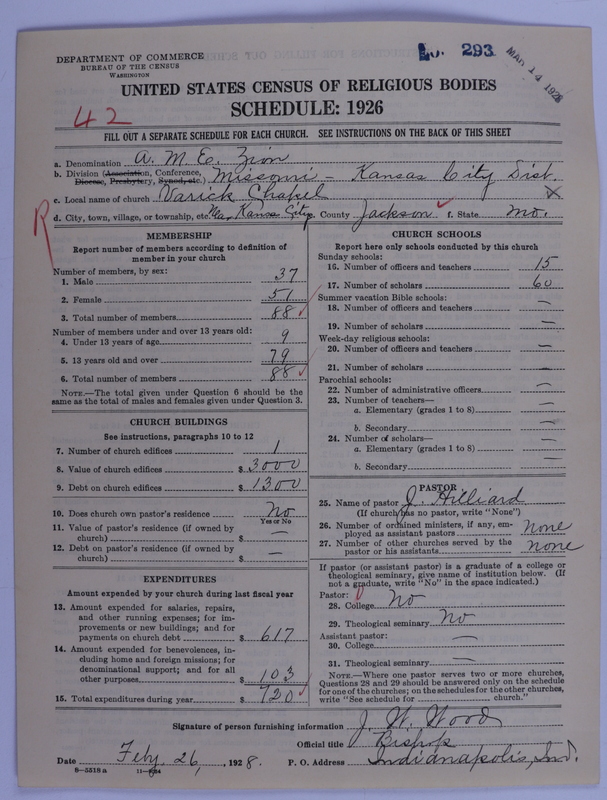 DEPARTMENT OF COMMERCE
BUREAU OF THE CENSUS
WASHINGTON
No. 293
MAR 14 1928
UNITED STATES CENSUS OF RELIGIOUS BODIES
SCHEDULE: 1926
42
FILL OUT A SEPARATE SCHEDULE FOR EACH CHURCH. SEE INSTRUCTIONS ON THE BACK OF THIS SHEET
a. Denomination A. M. E. Zion
b. Division (Association, Conference, Diocese, Presbytery, Synod, etc.) Missouri - Kansas City Dist.
c. Local name of church Varick Chapel
d. City, town, village, or township, etc. Kansas City County Jackson f. State Mo.
R
MEMBERSHIP
Report number of members according to definition of
member in your church
Number of members, by sex:
1. Male 37
2. Female 51
3. Total number of members 88
Number of members under and over 13 years old:
4. Under 13 years of age 9
5. 13 years old and over 79
6. Total number of members 88
NOTE.—The total given under Question 6 should be
same as the total of males and females given under Question 3.
CHURCH BUILDINGS
See instructions, paragraphs 10 to 12
7. Number of church edifices 1
8. Value of church edifices $ 3000
9. Debt on church edifices $ 1300
10. Does church own pastor's residence No
Yes or No
11. Value of pastor's residence (if owned by
church) $ —
12. Debt on pastor's residence (if owned by
church) $ —
EXPENDITURES
Amount expended by your church during last fiscal year
13. Amount expended for salaries, repairs,
and other running expenses; for im-
provements or new buildings; and for
payments on church debt $ 617
14. Amount expended for benevolences, in-
cluding home and foreign missions; for
denominational support; and for all
other purposes $ 103
15. Total expenditures during year $ 720
CHURCH SCHOOLS
Report here only schools conducted by this church
Sunday schools:
16. Number of officers and teachers 15
17. Number of scholars 60
Summer vacation Bible schools:
18. Number of officers and teachers —
19. Number of scholars —
Week-day religious schools:
20. Number of officers and teachers —
21. Number of scholars —
Parochial schools:
22. Number of administrative officers —
23. Number of teachers—
a. Elementary (grades 1 to 8) —
b. Secondary —
24. Number of scholars—
a. Elementary (grades 1 to 8) —
b. Secondary —
PASTOR
25. Name of pastor J. Hilliard
(If church has no pastor, write "None")
26. Number of ordained ministers, if any, em-
ployed as assistant pastors none
27. Number of other churches served by the
pastor or his assistants none
If pastor (or assistant pastor) is a graduate of a college or
theological seminary, give name of institution below. (If
not a graduate, write "No" in the space indicated.)
Pastor:
28. College No
29. Theological seminary No
Assistant pastor:
30. College —
31. Theological seminary —
NOTE.—Where one pastor serves two or more churches,
Questions 28 and 29 should be answered only on the schedule
for one of the churches; on the schedules for the other churches,
write "See schedule for church."
Signature of person furnishing information J. W. Wood
Official title Bishop
Date Feby. 26, 1928. P. O. Address Indianapolis, Ind.
8—5518 a